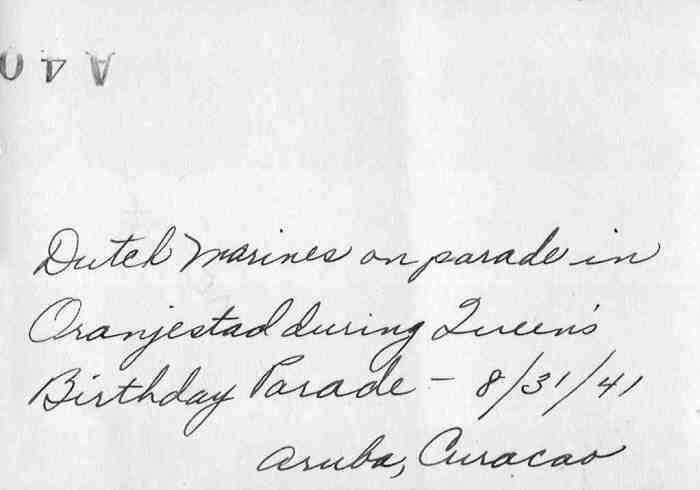 A40
Dutch Marines on parade in
Oranjestad during Queen's
Birthday Parade - 8/31/41
Aruba, Curacao